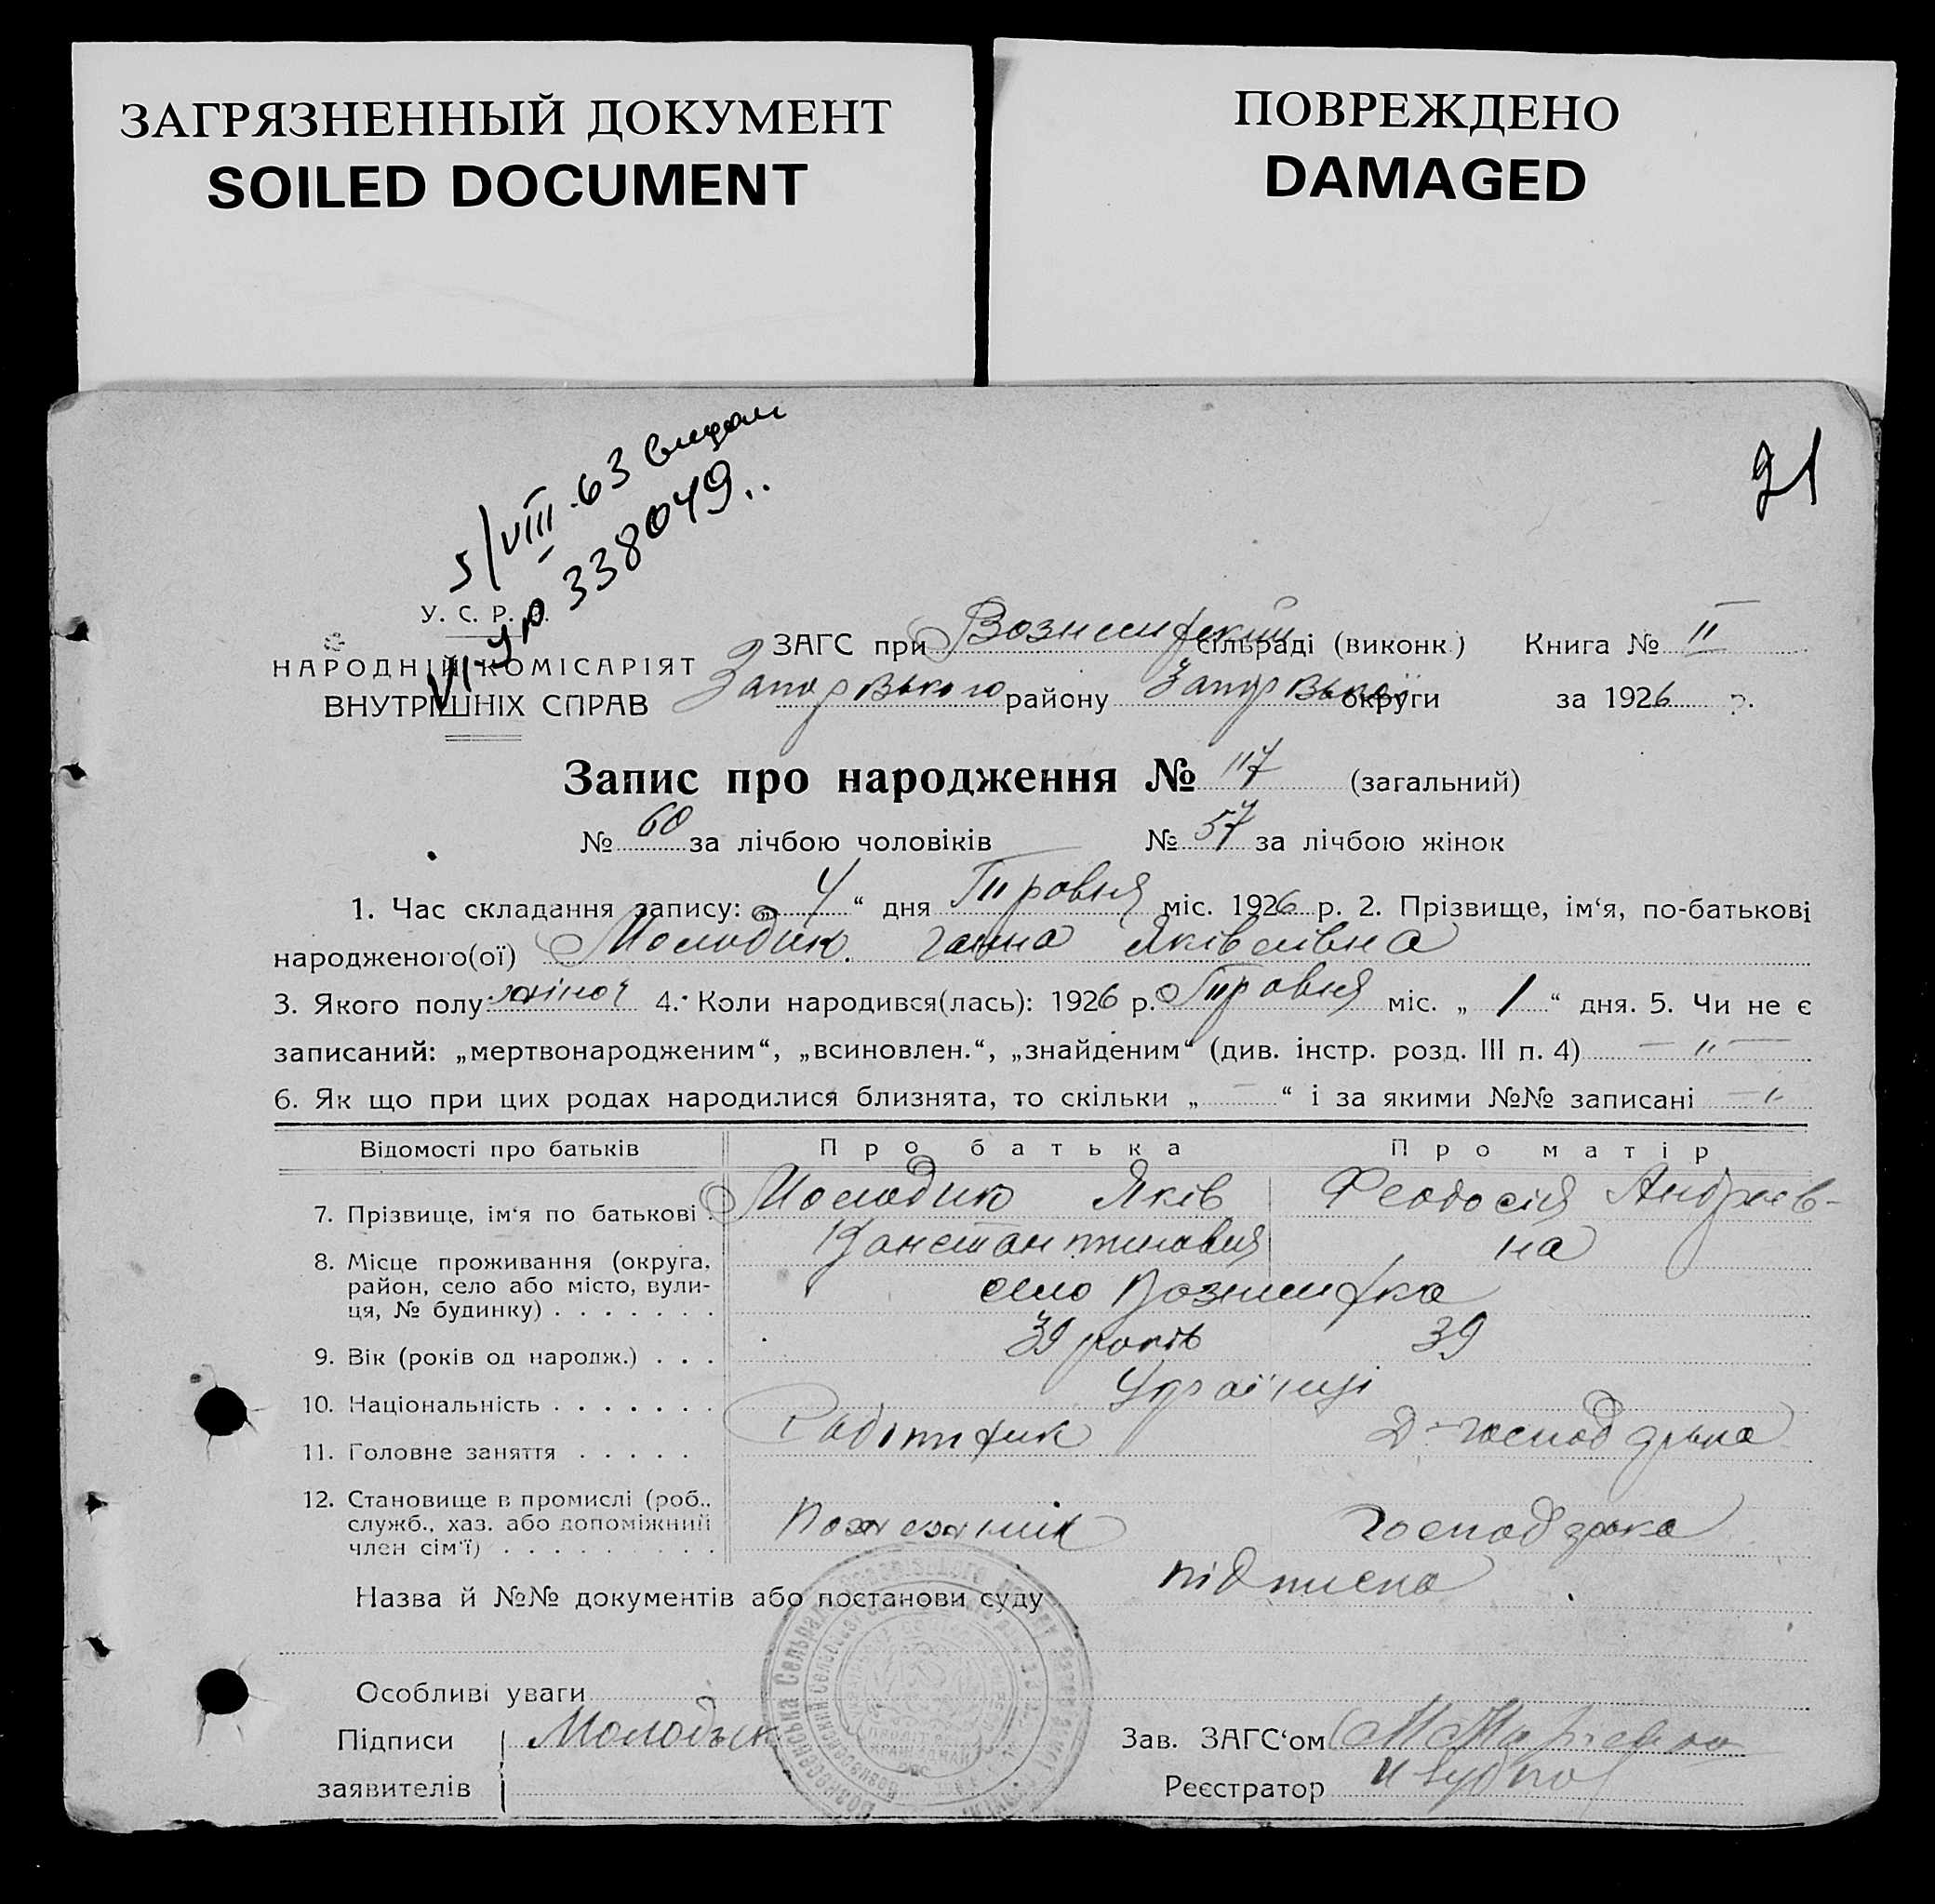 ЗАГРЯЗНЕННЫЙ ДОКУМЕНТ
SOILED DOCUMENT
ПОВРЕЖДЕНО
DAMAGED
5/VIII-63
VI-УР 338049..
21
У. С. Р. Р.
НАРОДНІЙ КОМІСАРІЯТ
ВНУТРІШНІХ СПРАВ
ЗАГС при сільраді (виконк.) Книга № II
району округи за 1926 р.
Запис про народження № 117 (загальний)
№ 60 за лічбою чоловіків № 57 за лічбою жінок
1. Час складання запису: „ 4 “ дня Тровня міс. 1926 р. 2. Прізвище, ім‘я, по-батькові
народженого(ої) Молодик Ганна Яківлівна
3. Якого полу жіноч 4. Коли народився(лась): 1926 р. Тровня міс. „ 1 “ дня. 5. Чи не є
записаний: „мертвонародженим“, „всиновлен.“, „знайденим“ (див. інстр. розд. III п. 4) — „ —
6. Як що при цих родах народилися близнята, то скільки „ — “ і за якими №№ записані — „
Відомості про батьків Про батька Про матір
7. Прізвище, ім‘я по батькові . Молодик Яків Феодосія Андреев-
на
8. Місце проживання (округа,
район, село або місто, вули-
ця, № будинку) . . . . . . . село
9. Вік (років од народж.) . . . 39 років 39
10. Національність . . . . . . . Українці
11. Головне заняття . . . . .
12. Становище в промислі (роб.,
служб., хаз. або допоміжний
член сім‘ї) . . . . . . . . .
Назва й №№ документів або постанови суду підписка
Особливі уваги
Підписи Молодык Зав. ЗАГС‘ом
заявителів Реєстратор